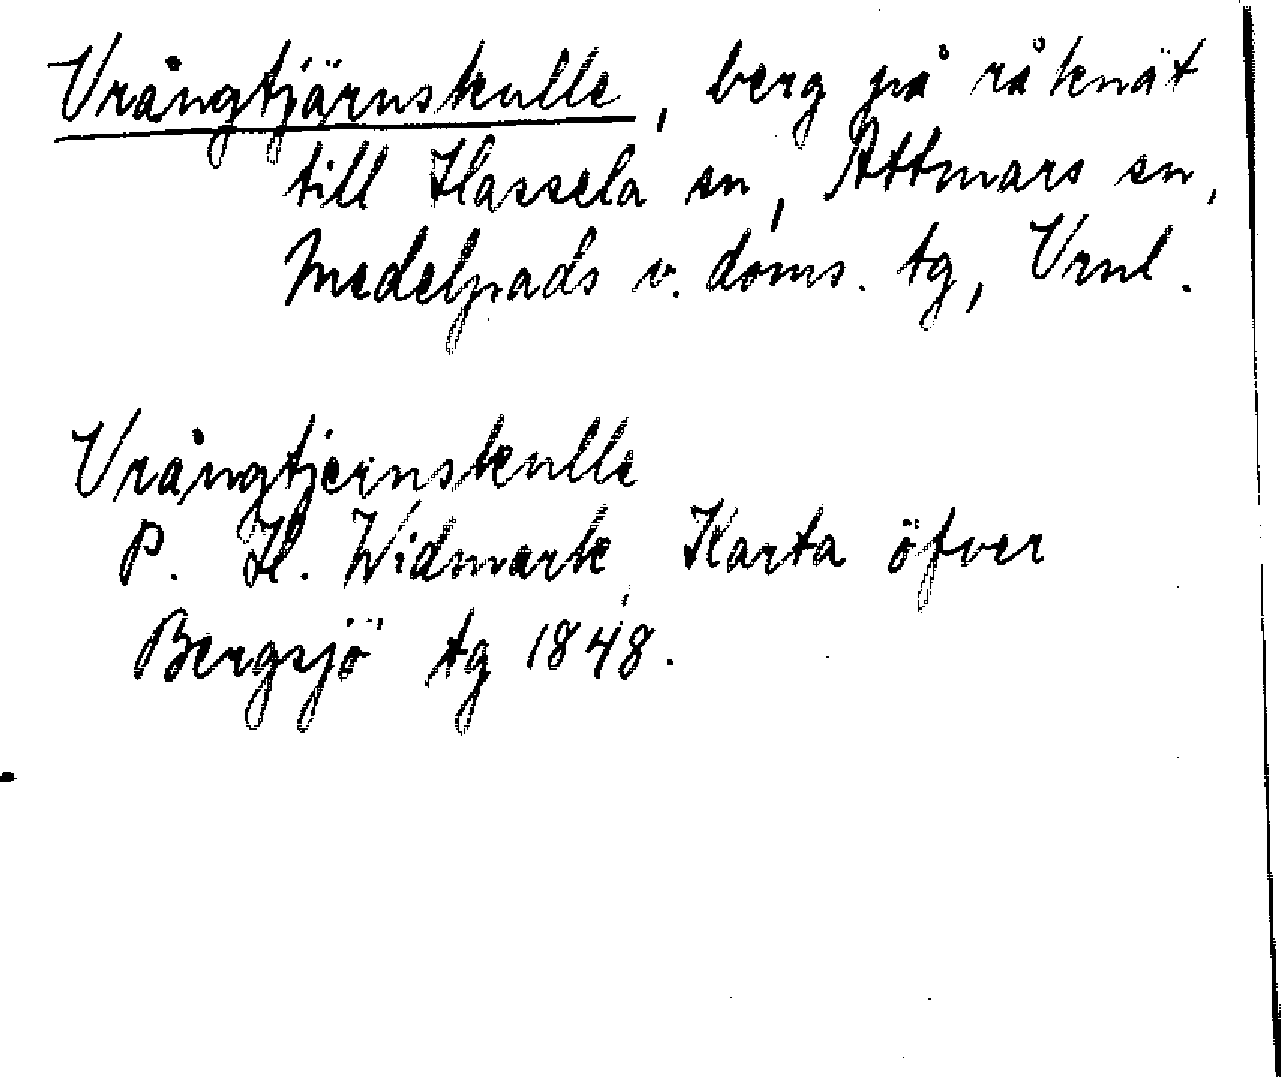 Vrångtjärnskulle, berg på råknät
till Hassela sn, Attmars sn,
Medelpads v. doms. tg, Vrnl.
Vrångtjernskulle
P. H. Widmark, Karta öfver
Bergsjö tg 1848.